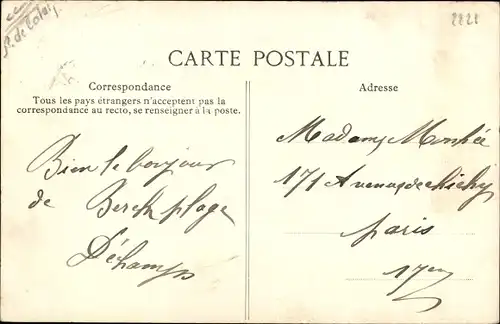 P. de Calais
2221
CARTE POSTALE
Correspondance
Tous les pays étrangers n'acceptent pas la
correspondance au recto, se renseigner à la poste.
Adresse
Bien le bonjour
de Berck plage
Déhamps
Madame
171 Avenue de Clichy
Paris
17em